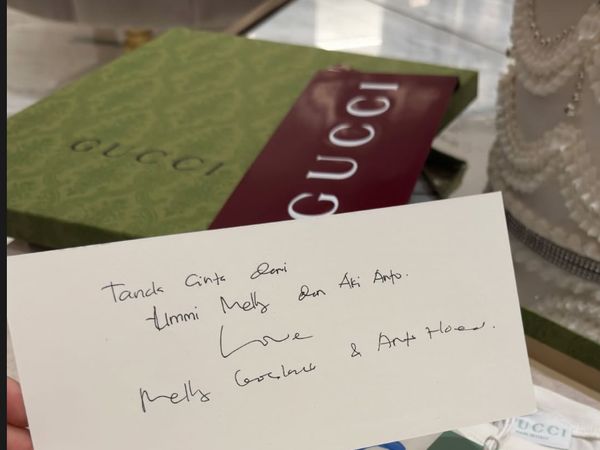 GUCCI
GUCCI
Tanda Cinta dari
Ummi Melly dan Aki Anto.
Love
Melly Goeslaw & Anto Hoed.
GUCCI